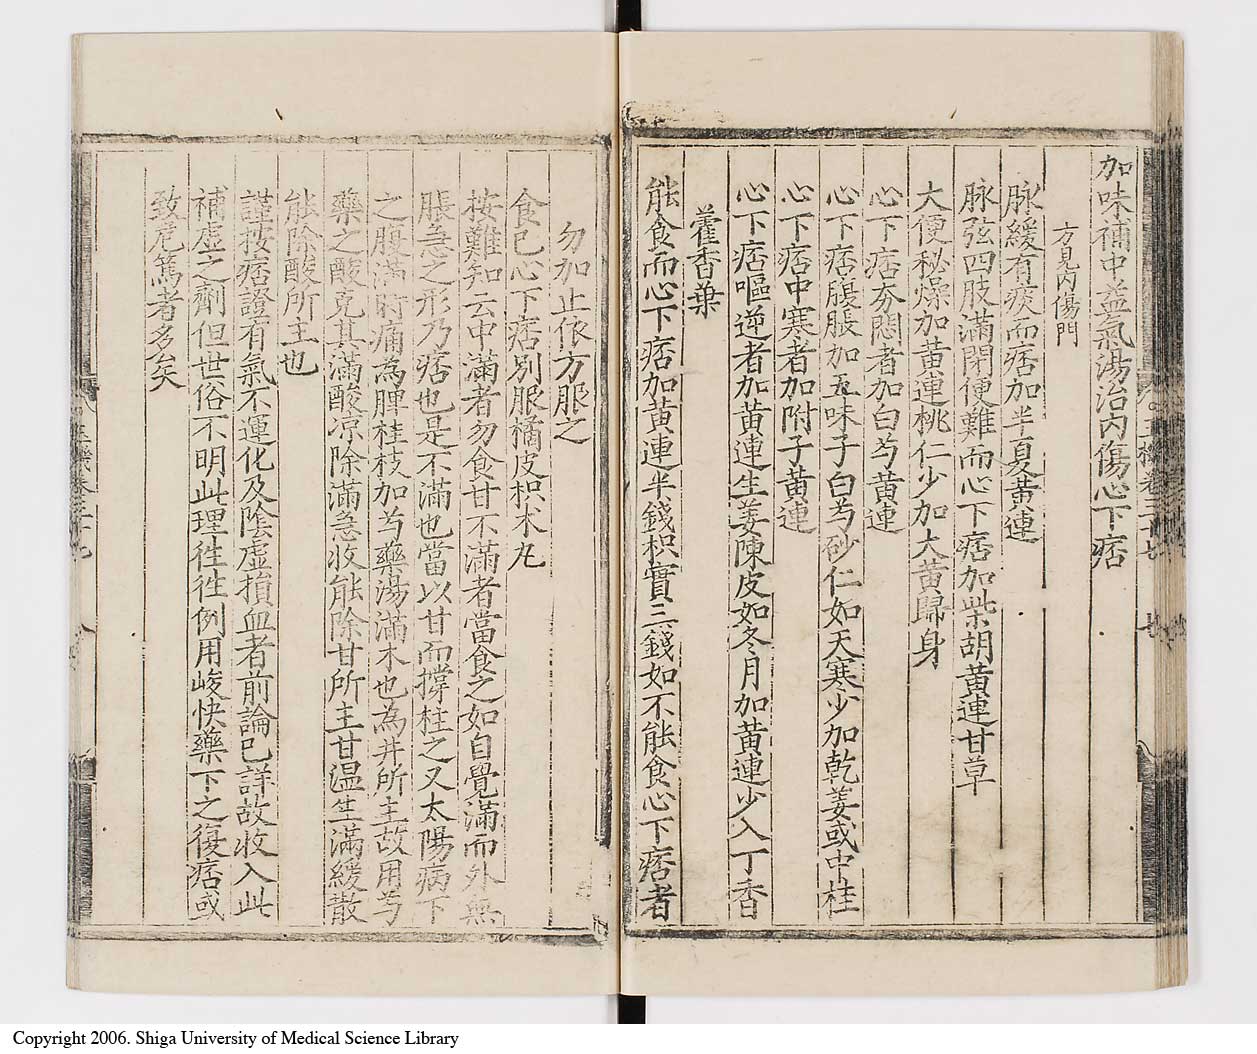 加味補中益氣湯治内傷心下痞
方見内傷門
脉緩有痰而痞加半夏黃連
脉弦四肢滿閉便難而心下痞加柴胡黃連甘草
大便秘燥加黃連桃仁少加大黃歸身
心下痞夯悶者加白芍黃連
心下痞腹脹加五味子白芍砂仁如天寒少加乾姜或中桂
心下痞中寒者加附子黃連
心下痞嘔逆者加黃連生姜陳皮如冬月加黃連少入丁香
藿香葉
能食而心下痞加黃連半錢枳實三錢如不能食心下痞者
勿加止依方服之
食已心下痞別服橘皮枳朮丸
按難知云中滿者勿食甘不滿者當食之如自覺滿而外無
脹急之形乃痞也是不滿也當以甘而撐柱之又太陽病下
之腹滿時痛為脾桂枝加芍藥湯滿木也為井所主故用芍
藥之酸克其滿酸凉除滿急收能除甘所主甘温生滿緩散
能除酸所主也
謹按痞證有氣不運化及陰虛損血者前論已詳故收入此
補虛之劑但世俗不明此理徃徃例用峻快藥下之復痞或
致危篤者多矣
Copyright 2006. Shiga University of Medical Science Library